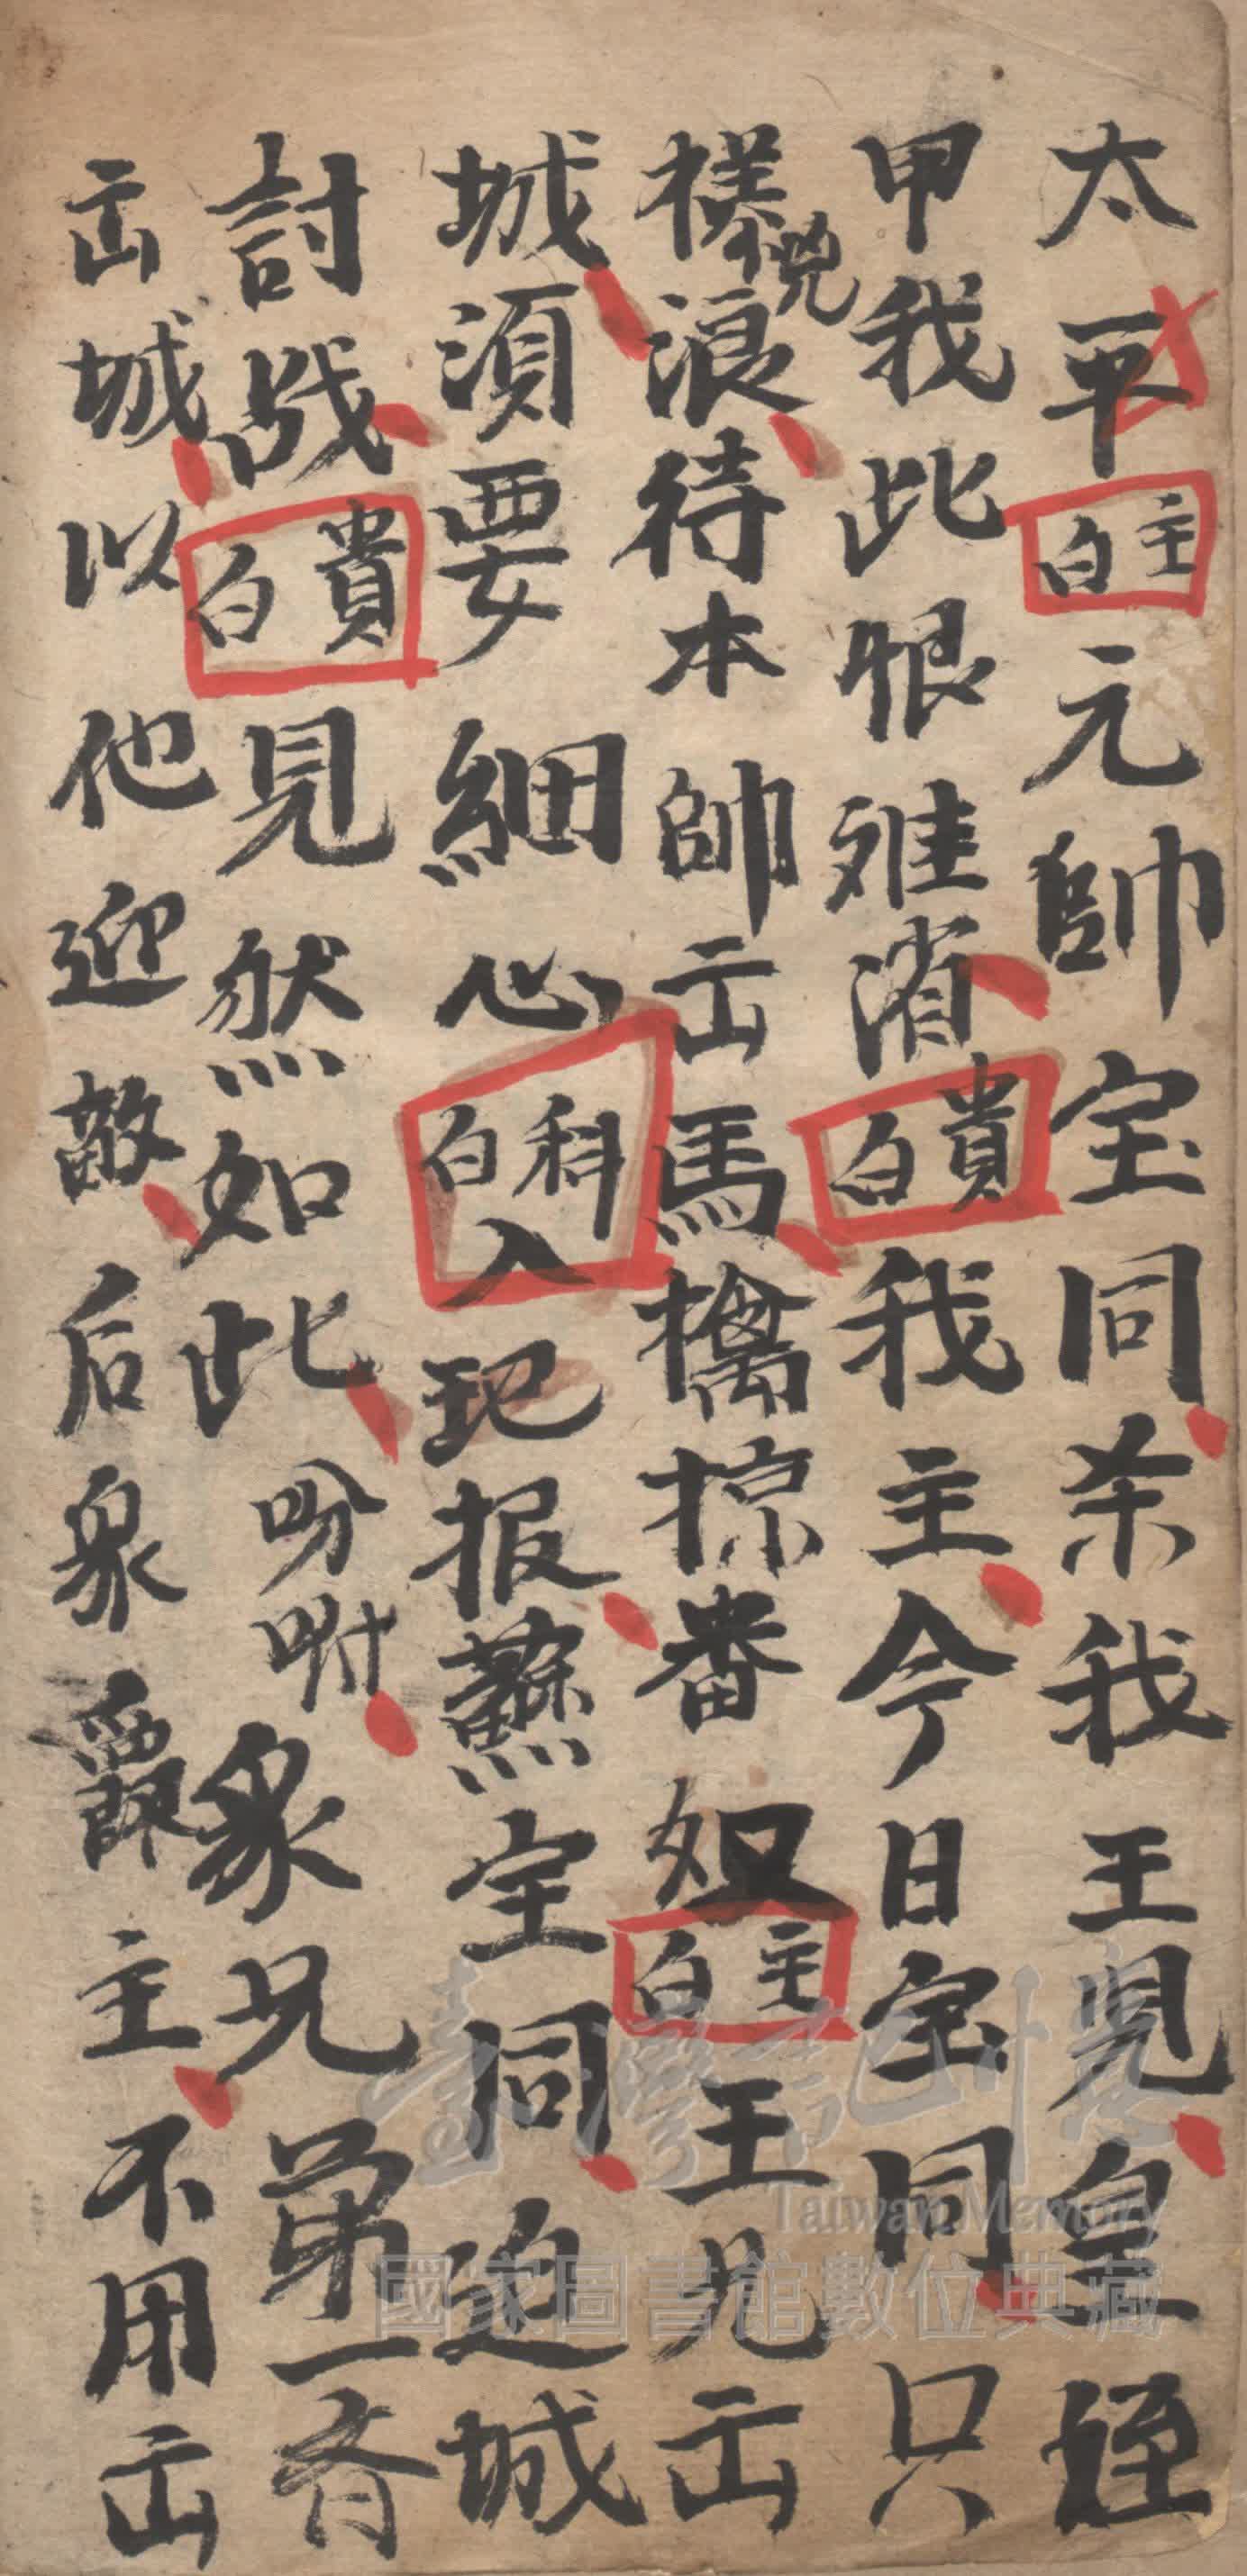 太平主白元帥宝同杀我王兒皇姪
甲我此恨难消貴白我主今日宝同只
樣兇浪待本帥出馬擒掠番奴主白王兄出
城須要細心科白入 报蘇宝同迫城
討战貴白見然如此吩咐象兄弟一斉
出城以他迎敵后象爵主不用出
臺灣記憶
Taiwan Memory
國家圖書館數位典藏